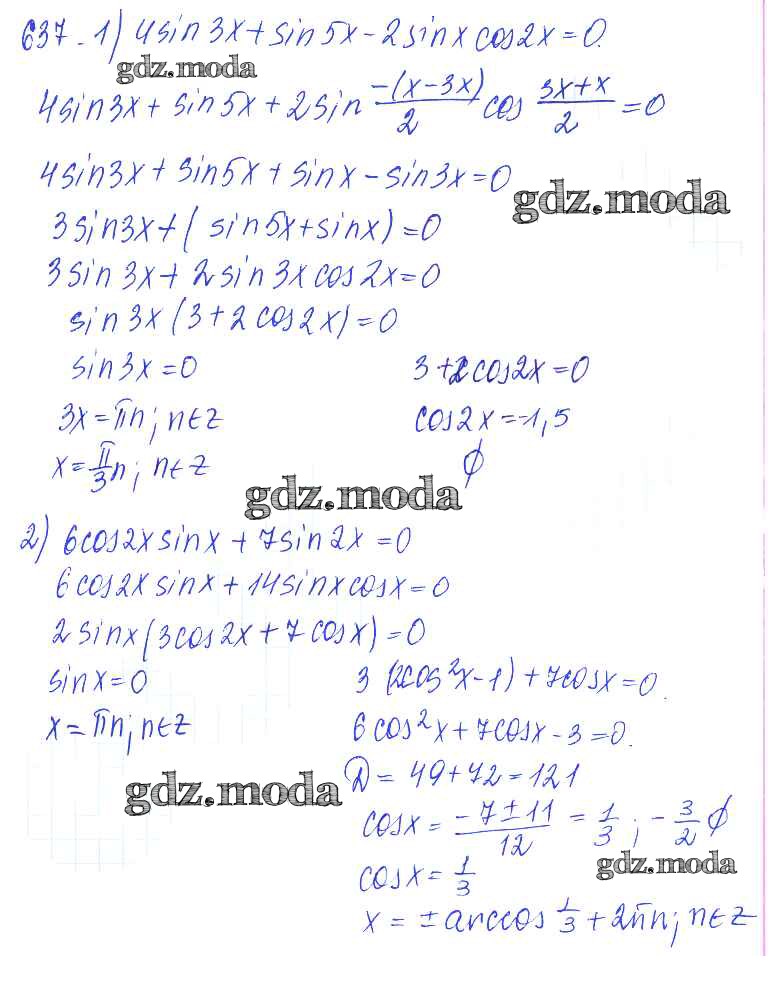 637. 1) 4sin3x+sin5x-2sinxcos2x=0.
gdz.moda
4sin3x+sin5x+2sin -(x-3x)/2 cos 3x+x/2 =0
4sin3x+sin5x+sinx-sin3x=0
gdz.moda
3sin3x+(sin5x+sinx)=0
3sin3x+2sin3xcos2x=0
sin3x(3+2cos2x)=0
sin3x=0 3+2cos2x=0
3x=πn; n∈z cos2x=-1,5
x=π/3 n; n∈z ∅
gdz.moda
2) 6cos2xsinx+7sin2x=0
6cos2xsinx+14sinxcosx=0
2sinx(3cos2x+7cosx)=0
sinx=0 3(2cos²x-1)+7cosx=0.
x=πn; n∈z 6cos²x+7cosx-3=0.
gdz.moda
D=49+72=121
cosx= -7±11/12 = 1/3; -3/2 ∅
gdz.moda
cosx=1/3
x=±arccos 1/3 +2πn; n∈z